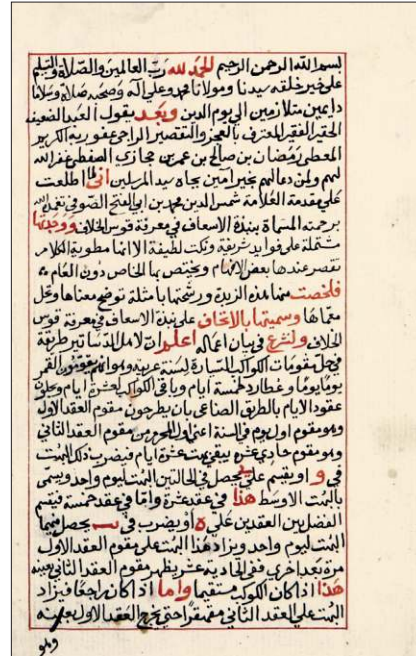 بسم الله الرحمن الرحيم الحمد لله رب العالمين والصلاة والتسليم
على خير خلقه سيدنا ومولانا محمد وعلى آله وصحبه صلاة وسلاما
دايمين متلازمين الى يوم الدين وبعد يقول العبد الضعيف
الحقير الفقير المعترف بالعجز والتقصير الراجي عفو ربه الكريم
المعطي رمضان بن صالح بن عمر بن حجازي الصفطي غفر الله
لهم ولمن دعا لهم بخير امين بجاه سيد المرسلين انى لما اطلعت
على مقدمة العلامة شمس الدين محمد بن ابي الفتح الصوفي تغمده الله
برحمته المسماة بنبذة الاسعاف في معرفة قوس الخلاف ووجدتها
مشتملة على فوايد شريفة ونكت لطيفة الا انها مطوية الكلام
تقصر عندها بعض الافهام ويختص بها الخاص دون العام
فلخصت منها هذه الزبدة ورشحتها بامثلة توضح معناها وتحل
معماها وسميتها بالاتحاف على نبذة الاسعاف في معرفة قوس
الخلاف ولنشرع في بيان اعماله اعلم ان لاهل الدساتير طريقة
في حل مقومات الكواكب السيارة لسنة عربية وهو انهم يقومون القمر
يوما يوما وعطارد خمسة ايام وباقي الكواكب لعشرة ايام ويحلون
عقود الايام بالطريق الصناعي بان يطرحون مقوم العقد الاول
وهو مقوم اول يوم في السنة اعني اول المحرم من مقوم العقد الثاني
وهو مقوم حادي عشره يبقى بهت عشرة ايام فيضرب ذلك البهت
في و او يقسم على ي يحصل في الحالتين البهت ليوم واحد ويسمى
بالبهت الاوسط هذا في عقد عشرة واما في عقد خمسة فيقسم
الفضل بين العقدين على ه او يضرب في يب يحصل منهما
البهت ليوم واحد ويزاد هذا البهت على مقوم العقد الاول
مرة بعد اخرى ففي الحادية عشر يظهر مقوم العقد الثاني بعينه
هذا اذا كان الكوكب مستقيما واما اذا كان راجعا فيزاد
البهت على العقد الثاني مقهقرا حتى يخرج العقد الاول بعينه
وهو